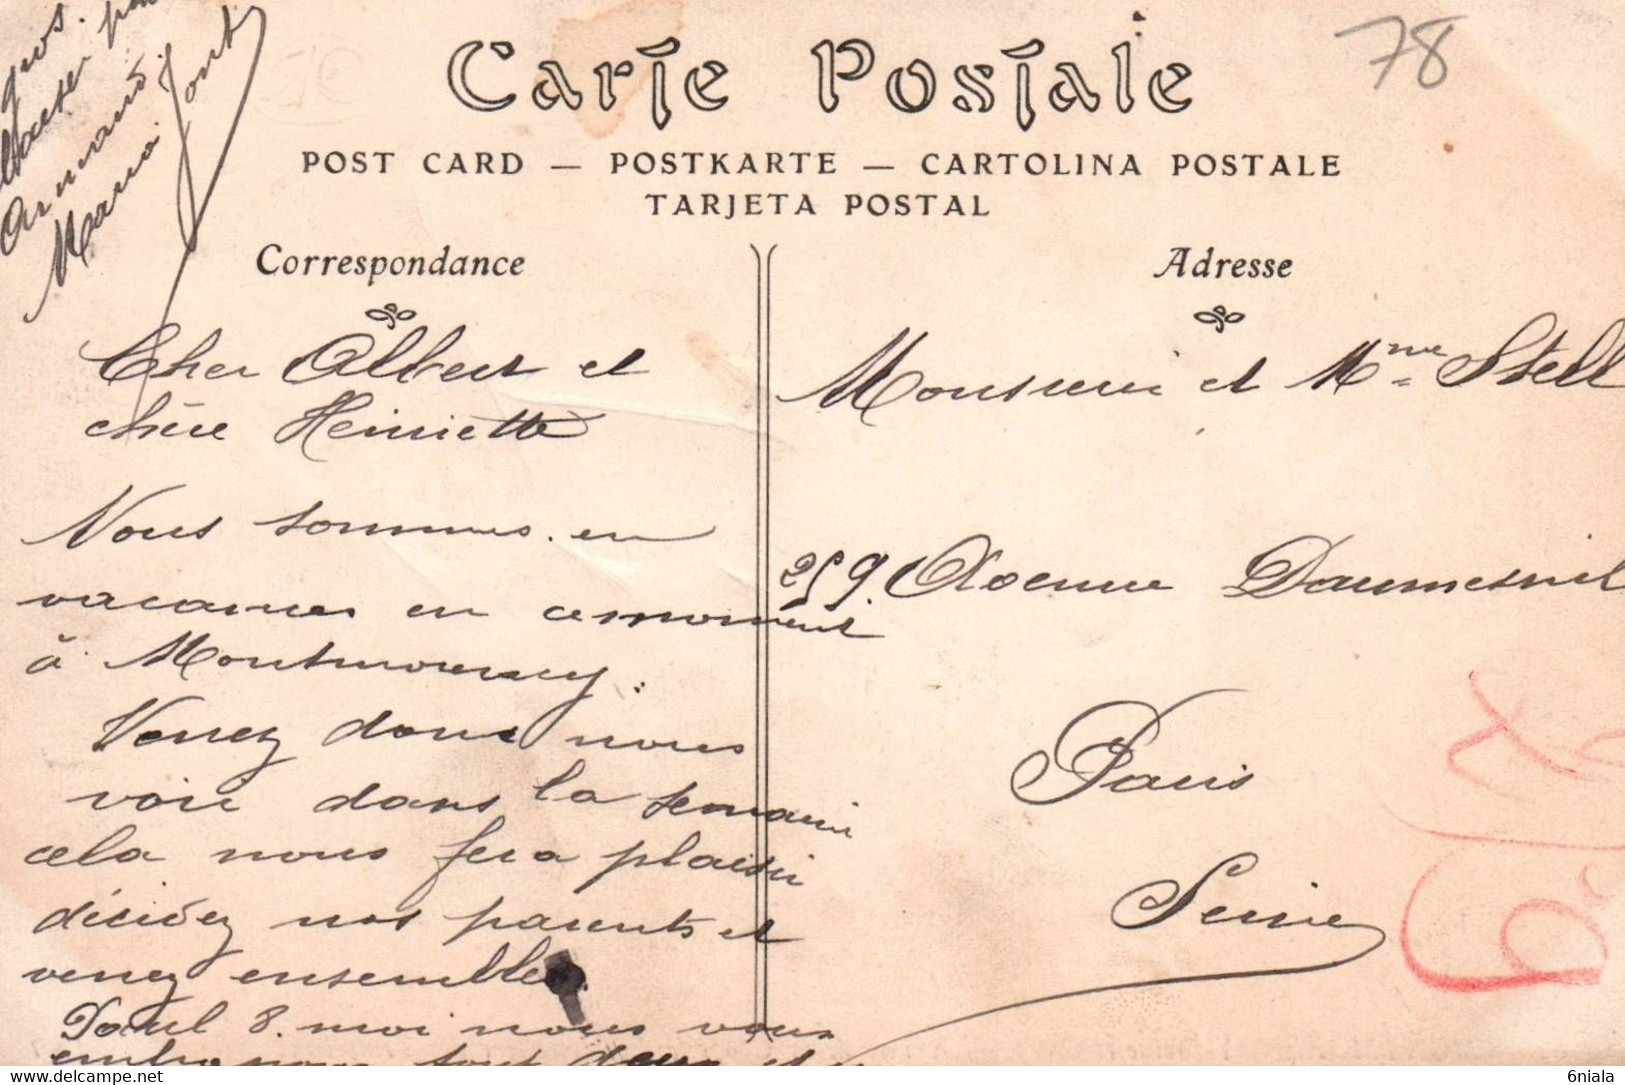 Carte Postale
78
POST CARD — POSTKARTE — CARTOLINA POSTALE
TARJETA POSTAL
Correspondance
Cher Albert et
chère Henriette
Nous sommes en
vacances en ce moment
à Montmorency.
Venez donc nous
voir dans la semaine
cela nous fera plaisir
décidez nos parents et
venez ensemble
Paul & moi nous vous
embrassons tout deux et
gros.
Armand
Maria
Adresse
Monsieur et Mme Stell
259. Avenue Daumesnil
Paris
Seine
6niala